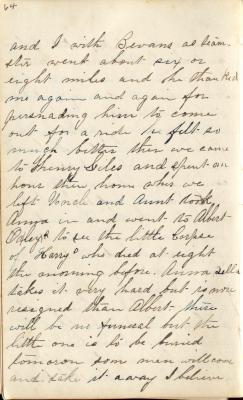 64
and I with Bevans as team-
ster went about six or
eight miles and he thanked
me again and again for
persuading him to come
out for a ride he felt so
much better then we came
to Henry Giles and spent an
hour then home when we
left Uncle and Aunt took
Anna in and went to Albert
to see the little Corpse
of "Harry" who died at eight
the morning before. Anna
takes it very hard but is more
resigned than Albert. there
will be no funeral but the
little one is to be buried
tomorrow some man will come
and take it away I believe